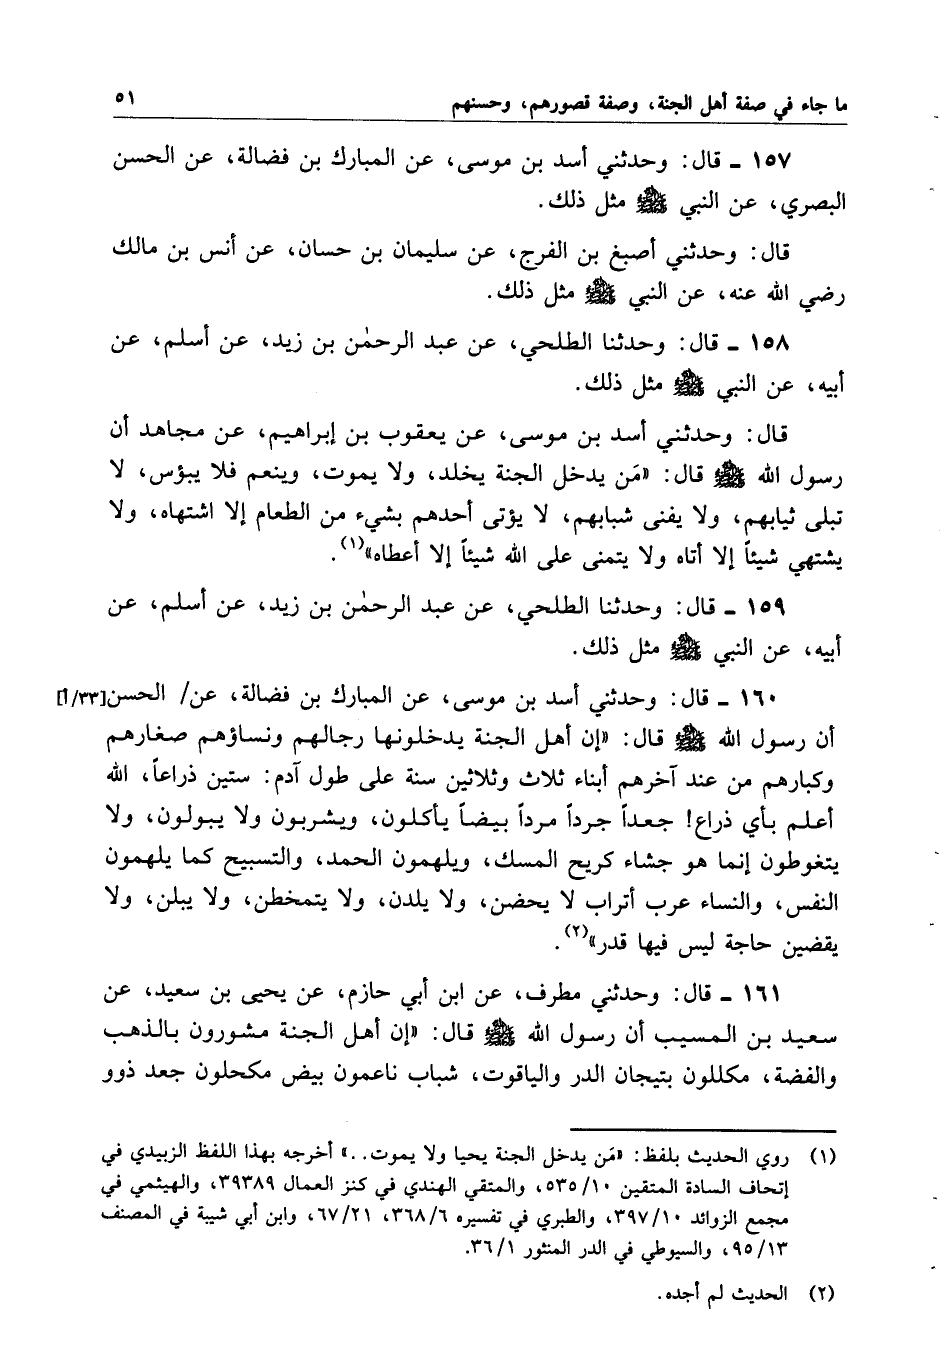 ما جاء في صفة أهل الجنة، وصفة قصورهم، وحسنهم ٥١
١٥٧ ـ قال: وحدثني أسد بن موسى، عن المبارك بن فضالة، عن الحسن
البصري، عن النبي ﷺ مثل ذلك.
قال: وحدثني أصبغ بن الفرج، عن سليمان بن حسان، عن أنس بن مالك
رضي الله عنه، عن النبي ﷺ مثل ذلك.
١٥٨ ـ قال: وحدثنا الطلحي، عن عبد الرحمٰن بن زيد، عن أسلم، عن
أبيه، عن النبي ﷺ مثل ذلك.
قال: وحدثني أسد بن موسى، عن يعقوب بن إبراهيم، عن مجاهد أن
رسول الله ﷺ قال: «مَن يدخل الجنة يخلد، ولا يموت، وينعم فلا يبؤس، لا
تبلى ثيابهم، ولا يفنى شبابهم، لا يؤتى أحدهم بشيء من الطعام إلا اشتهاه، ولا
يشتهي شيئاً إلا أتاه ولا يتمنى على الله شيئاً إلا أعطاه»(١).
١٥٩ ـ قال: وحدثنا الطلحي، عن عبد الرحمٰن بن زيد، عن أسلم، عن
أبيه، عن النبي ﷺ مثل ذلك.
١٦٠ ـ قال: وحدثني أسد بن موسى، عن المبارك بن فضالة، عن/ الحسن[٣٣/أ]
أن رسول الله ﷺ قال: «إن أهل الجنة يدخلونها رجالهم ونساؤهم صغارهم
وكبارهم من عند آخرهم أبناء ثلاث وثلاثين سنة على طول آدم: ستين ذراعاً، الله
أعلم بأي ذراع! جعداً جرداً مرداً بيضاً يأكلون، ويشربون ولا يبولون، ولا
يتغوطون إنما هو جشاء كريح المسك، ويلهمون الحمد، والتسبيح كما يلهمون
النفس، والنساء عرب أتراب لا يحضن، ولا يلدن، ولا يتمخطن، ولا يبلن، ولا
يقضين حاجة ليس فيها قدر»(٢).
١٦١ ـ قال: وحدثني مطرف، عن ابن أبي حازم، عن يحيى بن سعيد، عن
سعيد بن المسيب أن رسول الله ﷺ قال: «إن أهل الجنة مشورون بالذهب
والفضة، مكللون بتيجان الدر والياقوت، شباب ناعمون بيض مكحلون جعد ذوو
(١) روي الحديث بلفظ: «مَن يدخل الجنة يحيا ولا يموت..» أخرجه بهذا اللفظ الزبيدي في
إتحاف السادة المتقين ١٠/ ٥٣٥، والمتقي الهندي في كنز العمال ٣٩٣٨٩، والهيثمي في
مجمع الزوائد ١٠/ ٣٩٧، والطبري في تفسيره ٦/ ٣٦٨، ٢١/ ٦٧، وابن أبي شيبة في المصنف
١٣/ ٩٥، والسيوطي في الدر المنثور ١/ ٣٦.
(٢) الحديث لم أجده.